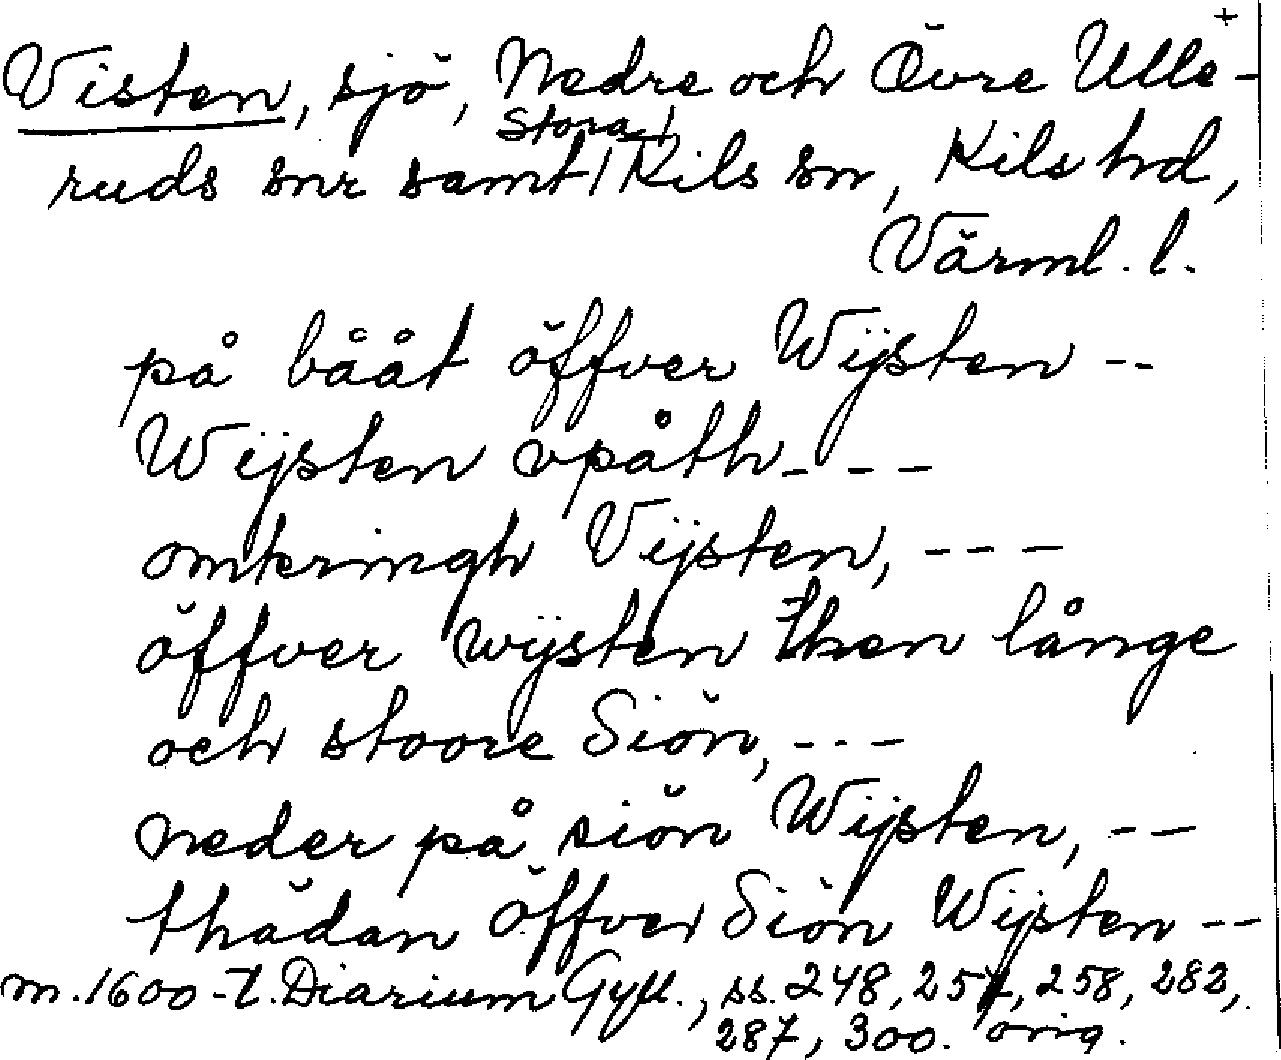 +
Visten, sjö, Nedre och Övre Ulle-
ruds snr samt / Stora / Kils sn, Kils hd,
Värml. l.
på bååt öffver Wijsten --
Wijsten vpåth - - -
omkringh Vijsten, - - -
öffver wijsten then långe
och stoore Siön, - - -
neder på siön Wijsten, - -
thädan öffver Siön Wijsten - -
m. 1600-t. Diarium Gyll., ss. 248, 257, 258, 282,
287, 300. orig.